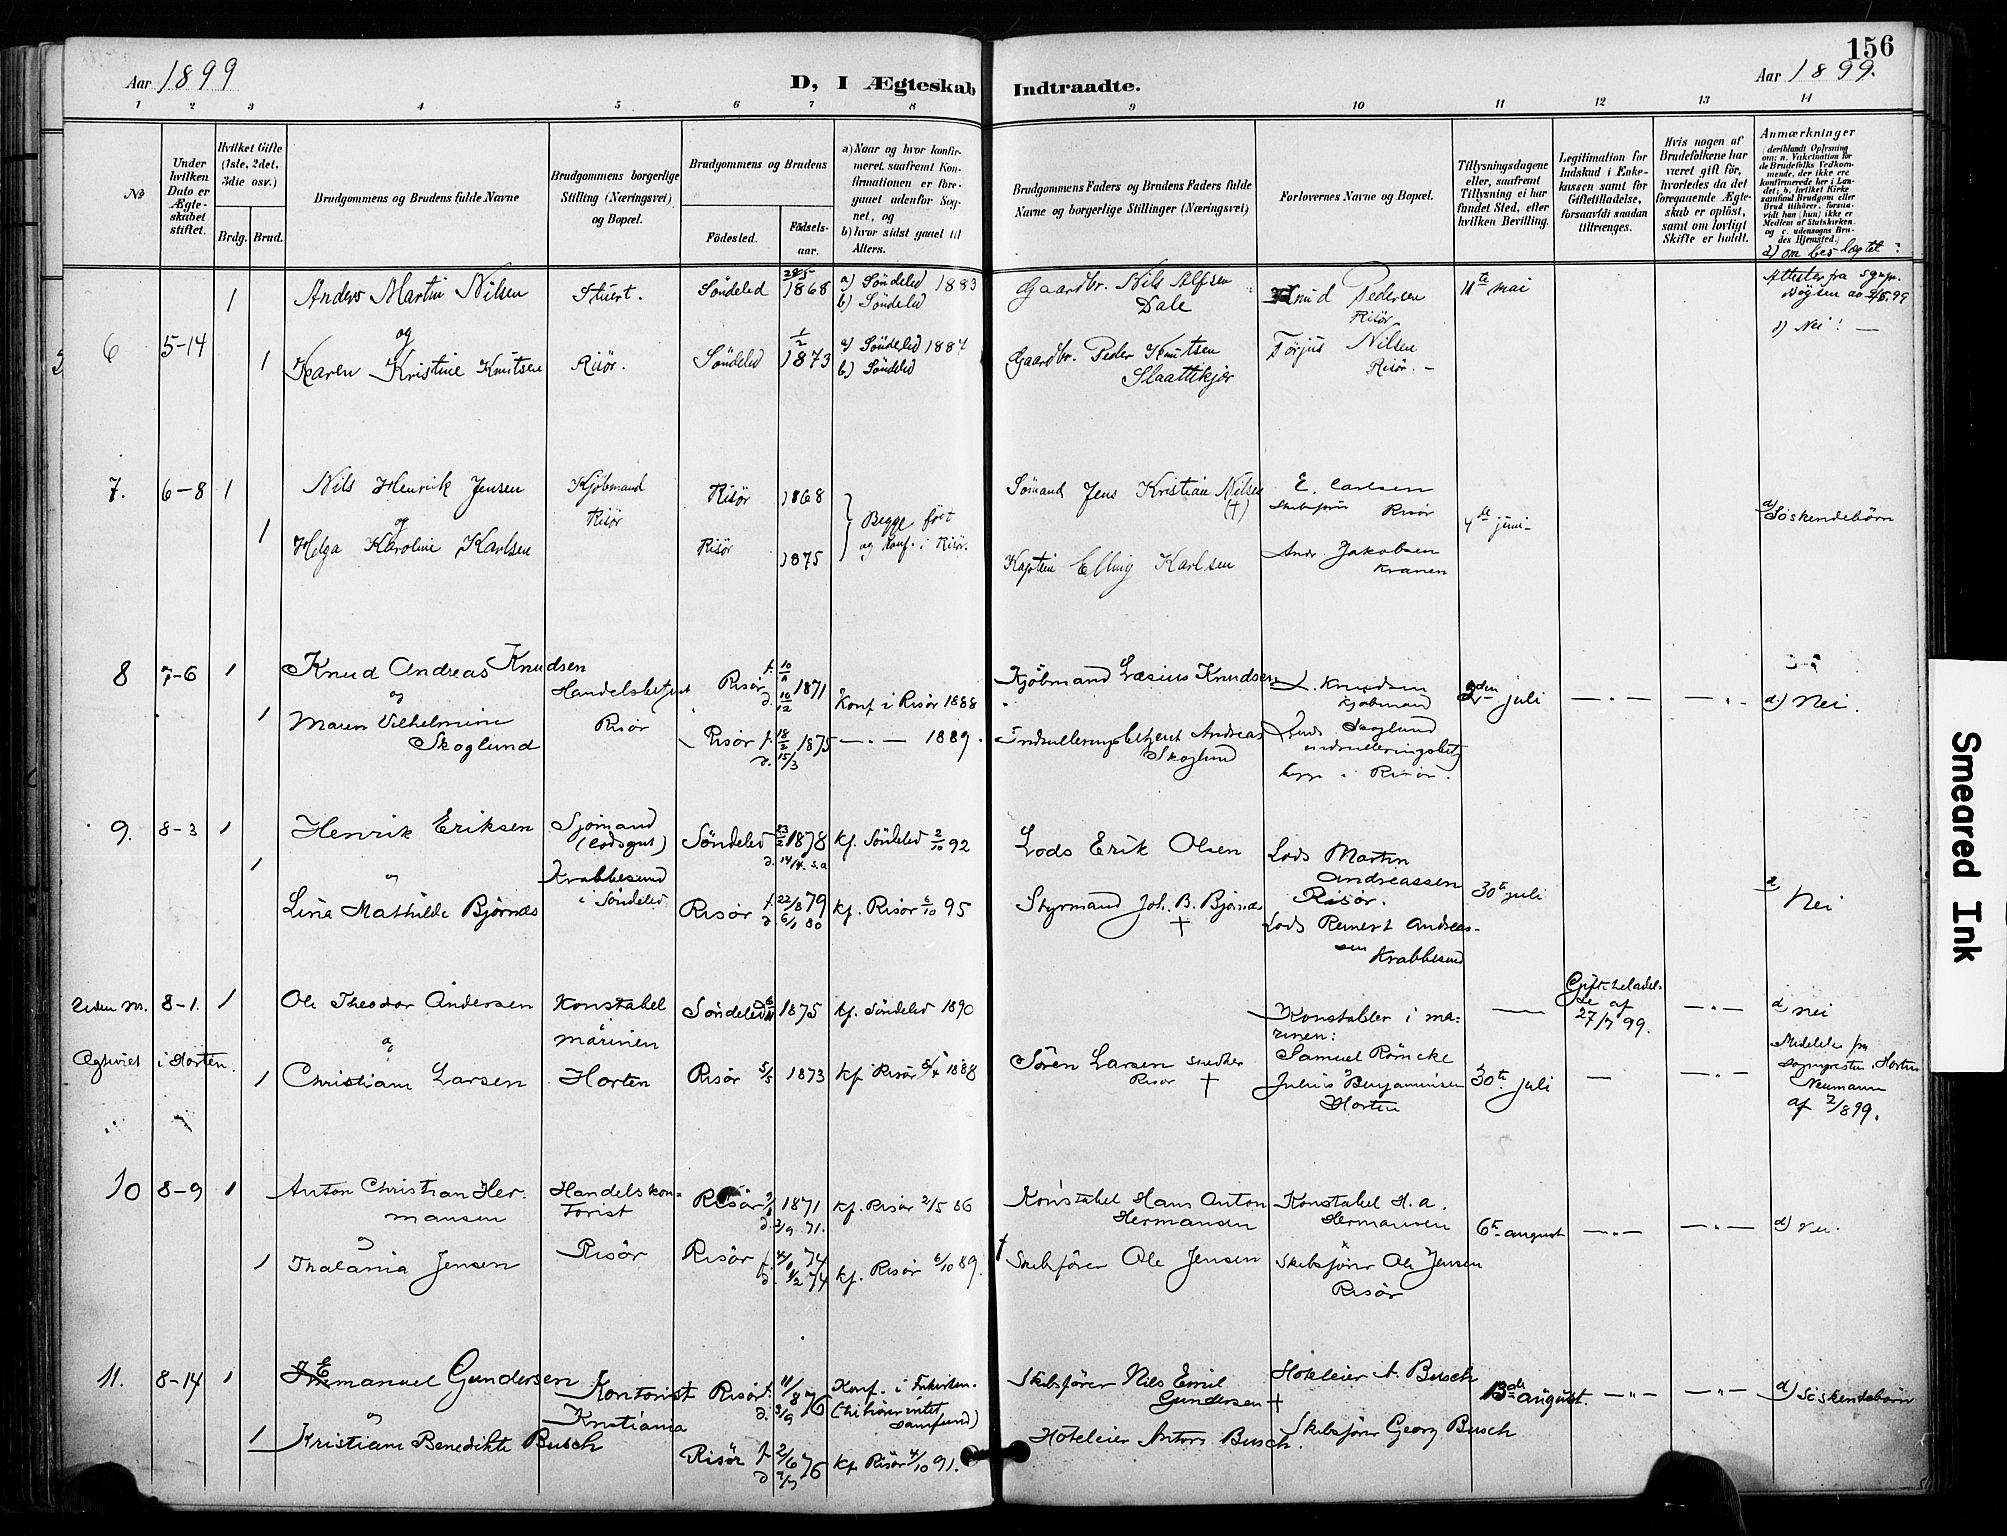 156
Aar 1899
D, I Ægteskab Indtraadte.
Aar 1899.
1 2 3 4 5 6 7 8 9 10 11 12 13 14
No
Under hvilken Dato er Ægteskabet stiftet.
Hvilket Gifte (1ste, 2det, 3die osv.)
Brdg. Brud.
Brudgommens og Brudens fulde Navne
Brudgommens borgerlige Stilling (Næringsvei) og Bopæl.
Brudgommens og Brudens
Fødested.
Fødsels-aar.
a) Naar og hvor konfirmeret, saafremt Konfirmationen er foregaaet udenfor Sognet, og
b) hvor sidst gaaet til Alters.
Brudgommens Faders og Brudens Faders fulde Navne og borgerlige Stillinger (Næringsvei)
Forlovernes Navne og Bopæl.
Tillysningsdagene eller, saafremt Tillysning ei har fundet Sted, efter hvilken Bevilling.
Legitimation for Indskud i Enkekassen samt for Giftetilladelse, forsaavidt saadan tiltrænges.
Hvis nogen af Brudefolkene har været gift før, hvorledes da det foregaaende Ægteskab er opløst, samt om lovligt Skifte er holdt.
Anmærkninger
(deriblandt Oplysning om: a. Vakcination for de Brudefolks Vedkommende, der ikke ere konfirmerede her i Landet; b. hvilket Kirkesamfund Brudgom eller Brud tilhører, forsaavidt han (hun) ikke er Medlem af Statskirken, og c. udensogns Brudes Hjemsted.)
d) om beslægtet?
6 5-14 1 Anders Martin Nilsen Stuert. Söndeled 28/5 1868 a) Söndeled 1883
b) Söndeled
Gaardbr. Nils Alfsen
Dale
Knud Pedersen
Risør
11te mai
Attester fra
d) Nei!
og
1 Karen Kristine Knutsen Risör. Söndeled 1/2 1873 a) Söndeled 1887
b) Söndeled
Gaardbr. Peder Knutsen
Slaattekjær
Torjus Nilsen
Risør.
7. 6-8 1 Nils Henrik Jensen Kjöbmand
Risör
Risör 1868
Begge föit
og konf. i Risör.
Sömand Jens Kristian Nilsen
(†)
E. Carlsen
Skibsförer Risör
4de juni
d) Söskendebörn
og
1 Helga Karoline Karlsen Risör 1875
Kaptein Elling Karlsen
Andr. Jakobsen
Kranen
8 7-6 1 Knud Andreas Knudsen
Handelsbetjent
Risör
Risør f. 10/11 1871
d. 10/12
Konf i Risör 1888
Kjöbmand Læsius Knudsen
L. Knudsen
Kjöbmand
2den juli
d) Nei.
og
1 Maren Vilhelmine
Skoglund
Risør f. 18/2 1875
d. 15/3
1889.
Indrulleringsbetjent Andreas
Skoglund
Skoglund
indrulleringsbetj
begge i Risör.
9. 8-3 1 Henrik Eriksen Sjömand
(Lodsgut)
Krabbesund
i Söndeled
Söndeled 23/2 1878
d. 14/4 s.a
kf. Söndeled 2/10 92
Lods Erik Olsen
Lods Martin
Andreassen
Risør.
30te juli
d Nei
og
1 Lina Mathilde Björnæs
Risør f. 22/8 79
d. 6/1 80
kf. Risør 5/10 95
Styrmand Joh. B. Bjørnæs
†
Lods Reinert Andreas-
sen
Krabbesund
Uden No. 8-1. 1 Ole Theodor Andersen Konstabel
marinen
Horten
Söndeled 1875 kf. Söndeled 1890
Konstabler i ma-
rinen:
Samuel Römcke
Giftetiladel-
se af
27/7 99.
d nei
Ægteviet i Horten.
og
1 Christiane Larsen Risør 5/5 1873 kf Risør 1888
Sören Larsen snedker
Risør †
Julius Benjaminsen
Horten
30te juli
Meddelt fra
sogneprsten i Horten
Neumann
af 2/8 99.
10 8-9 1 Anton Christian Her-
mansen
Handelskon-
torist
Risör
Risør 1871
d. 3/9 71.
kf. Risør 2/5 86
Konstabel Hans Anton
Hermansen
Konstabel H. A.
Hermansen
6te august
d) nei.
og
1 Thalania Jensen Risør 74
d. 1/2 74
kf. Risør 6/10 89.
† Skibsfører Ole Jensen
Skibsfører Ole Jensen
Risør
11. 8-14 1 Emanuel Gundersen
Kontorist
Kristiania
Risør f. 11/8 76
d. 3/9
Konf. i Frikirken.
(tilhører intet
samfund)
Skibsfører Nils Emil
Gundersen †
Hoteleier A. Busch
13de august.
d) Söskendebörn
og
1 Kristiane Benedikte Busch
Risør f. 2/6 76
d. 9/7
kf. Risør 4/10 91.
Hoteleier Anton Busch.
Skibsfører Georg Busch
Smeared Ink